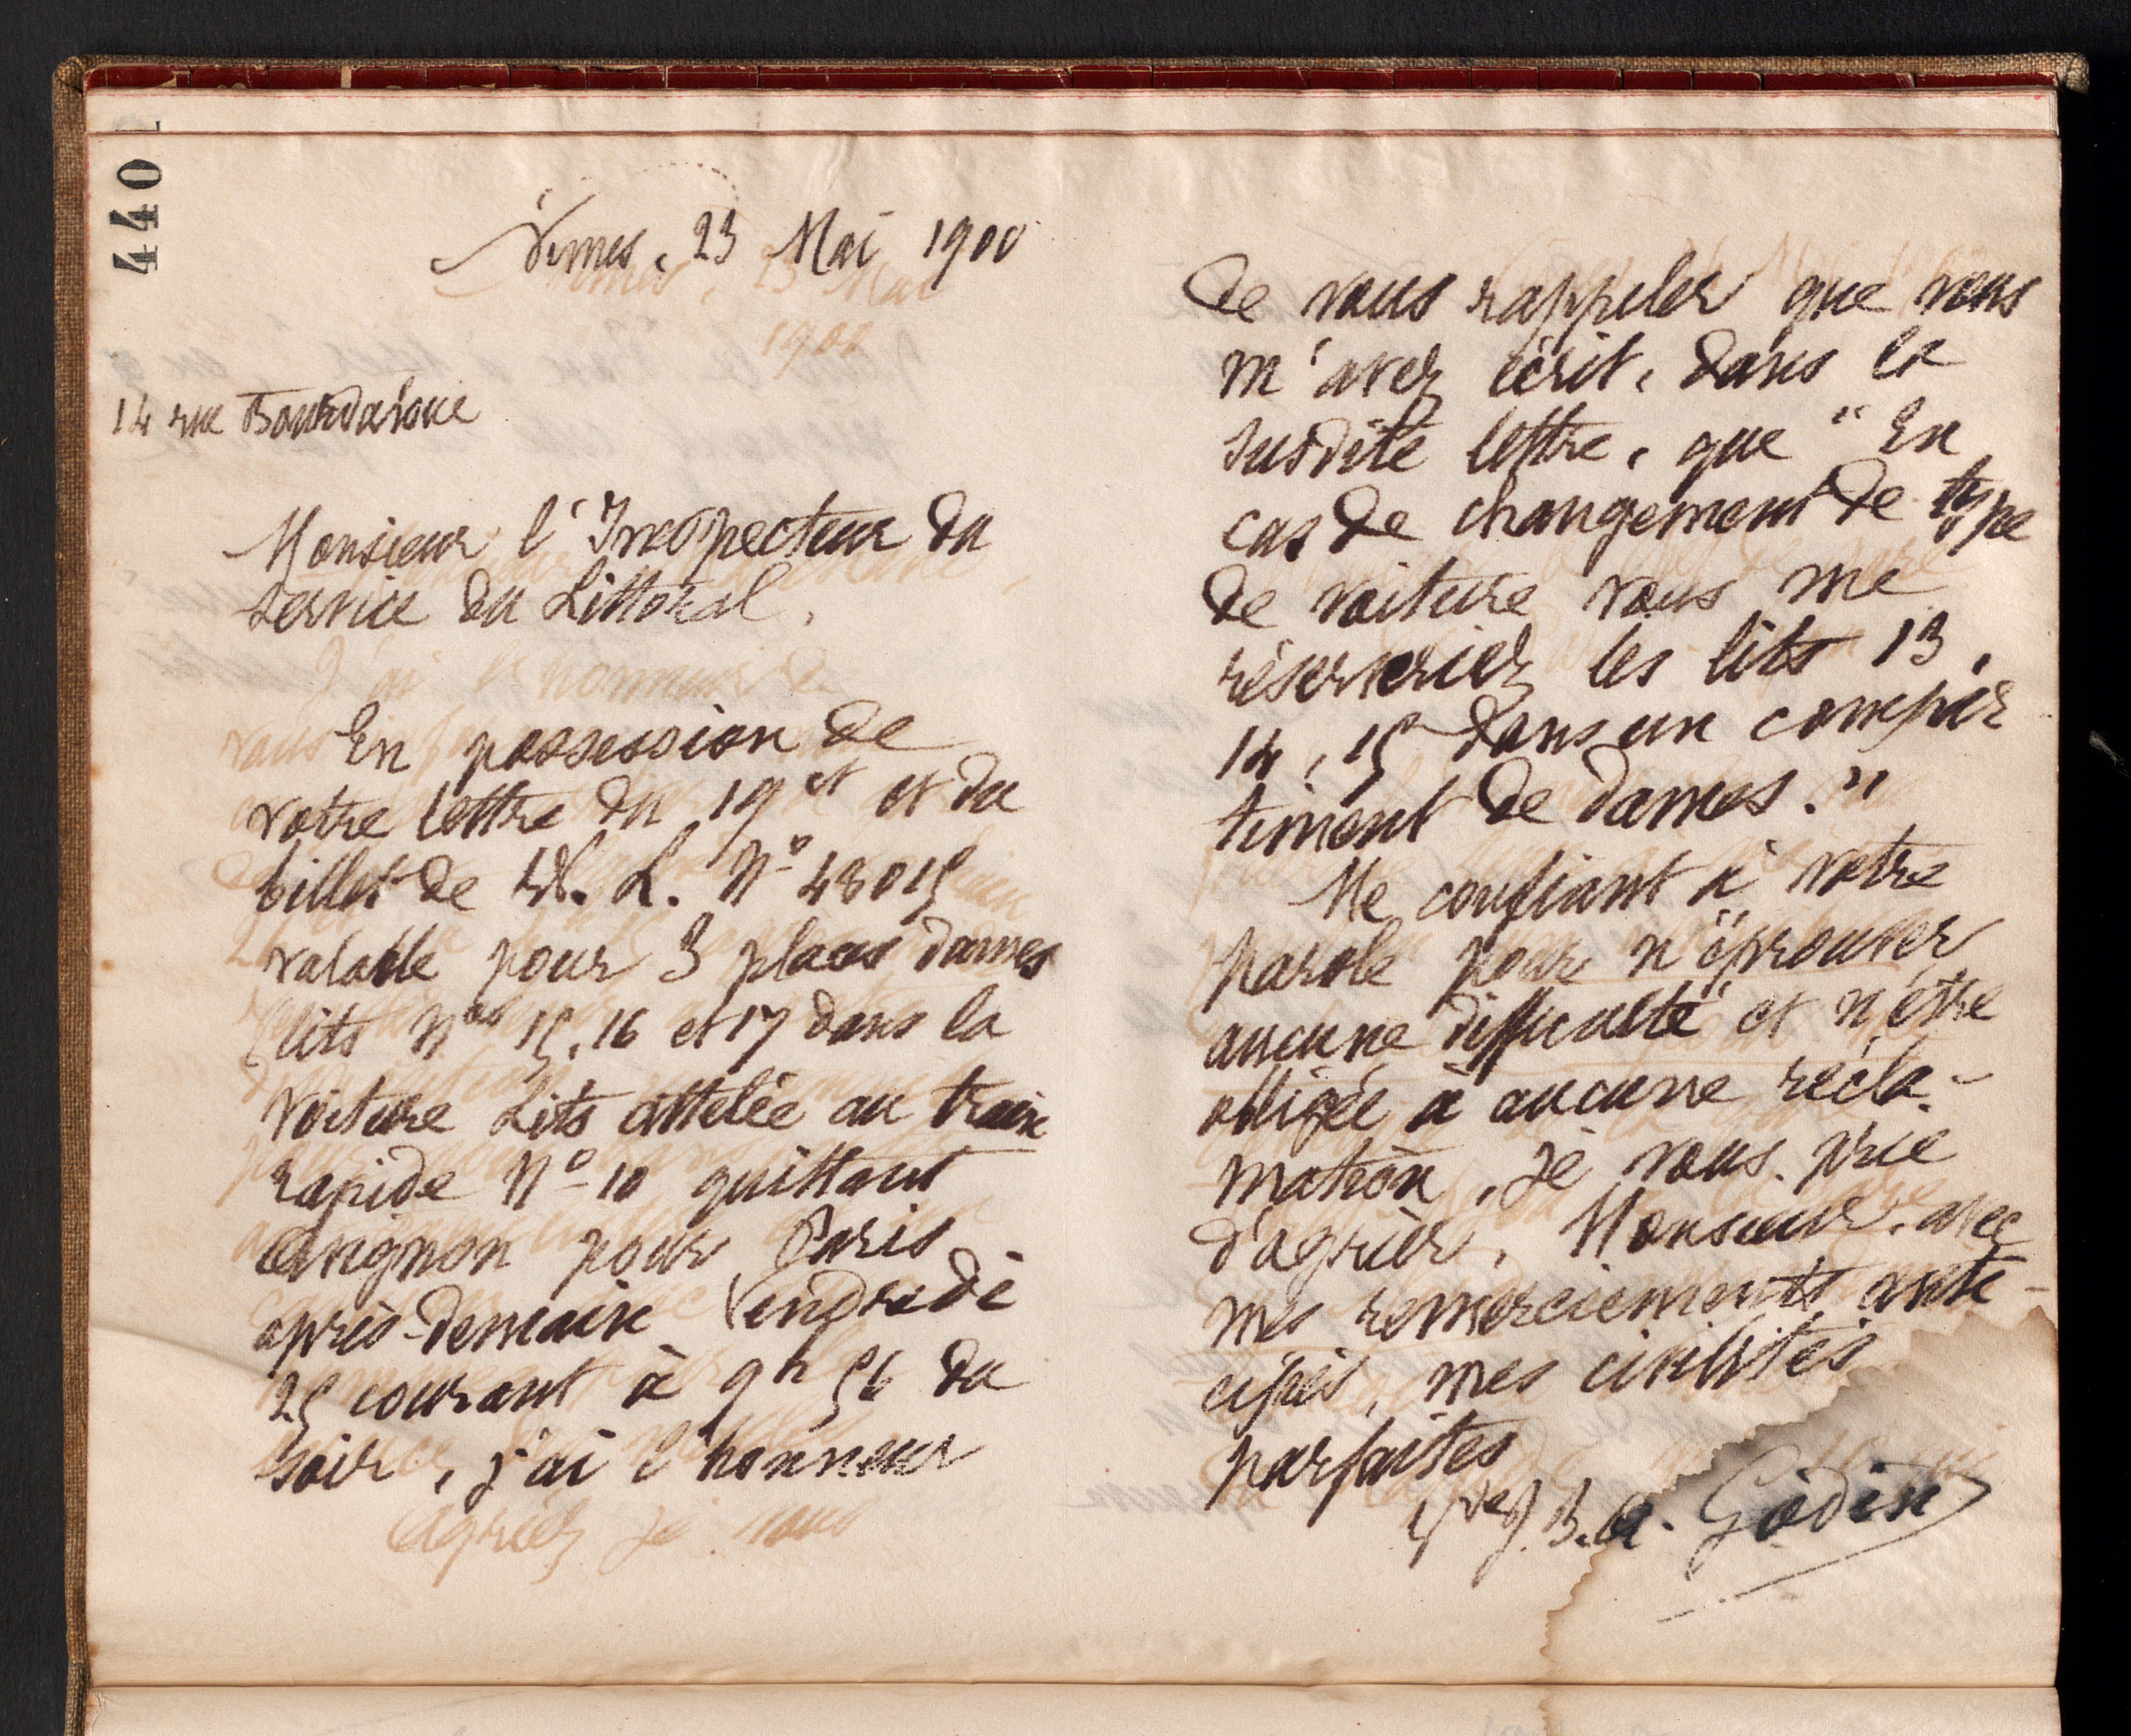 440
Nîmes, 23 Mai 1900
14 rue Bourdaloue
Monsieur l'Inspecteur du
service du Littoral,
En possession de
votre lettre du 19 ct et du
billet de W. L. N° 48015
valable pour 3 places dames
lits Nos 15, 16 et 17 dans la
voiture Lits attelée au train
rapide N° 10 quittant
Avignon pour Paris
après-demain Vendredi
25 courant à 9h 56 du
soir, j'ai l'honneur
Agréez je vous
de vous rappeler que vous
m'avez écrit, dans la
susdite lettre, que "En
cas de changement de type
de voiture vous me
réserveriez les lits 13,
14, 15 dans un compar
timent de dames."
Me confiant à votre
parole pour n'éprouver
aucune difficulté et n'être
obligée à aucune récla-
mation, je vous prie
d'agréer, Monsieur, avec
mes remerciements anti-
cipés, mes civilités
parfaites
Vve J. B. A. Godin